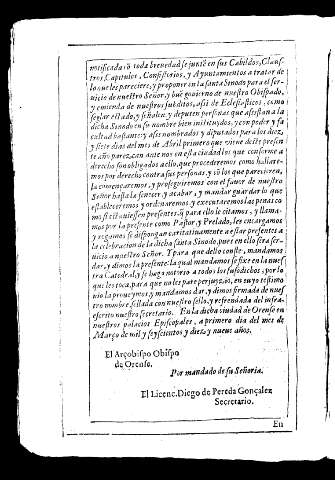 mitificada cō toda breuedad se juntē en sus Cabildos, Claus-
tros, Capitulos, Consistorios, y Ayuntamientos a tratar de
lo que les pareciere, y proponer en la santa Synodo para el ser-
uicio de nuestro Señor, y buē gouierno de nuestro Obispado,
y emienda de nuestros subditos, assi de Eclesiasticos, como
seglar estado, y señalen y deputen personas que assistan a la
dicha Synodo en su nombre bien instruydos, y con poder y fa
cultad bastante: y assi nombrados y diputados para los diez,
y siete dias del mes de Abril primero que viene deste presen-
te año parezcan ante nos en esta ciudad los que conforme a
derecho son obligados a ello, que procederemos como hallare-
mos por derecho contra sus personas, y cō los que parecieren,
la començaremos, y proseguiremos con el fauor de nuestro
Señor hasta la fenecer, y acabar, y mandar guardar lo que
estableceremos y ordenaremos, y executaremos las penas co
mo si estuuiessen presentes. q̄ para ello les citamos, y llama-
mos por la presente como Pastor, y Prelado, les encargamos
y rogamos se dispongan caritatiuamente a estar presentes a
la celebracion de la dicha santa Synodo, pues en ello sera ser-
uicio a nuestro Señor. Y para que dello conste, mandamos
dar, y dimos la presente: la qual mandamos se fixe en la nues
tra Catedral, y se haga notorio a todos los susodichos, por lo
que les toca, para que no les pare perjuyzio, en cuyo testimo
nio la proueymos, y mandamos dar, y dimos firmada de nues
tro nombre, sellada con nuestro sello, y refrendada del infra-
escrito nuestro secretario. En la dicha ciudad de Orense en
nuestros palacios Episcopales, a primero dia del mes de
Março de mil y seyscientos y diez y nueue años.
El Arçobispo Obispo
de Orense.
Por mandado de su Señoria.
El Licenc. Diego de Pereda Gonçalez
Secretario.
En